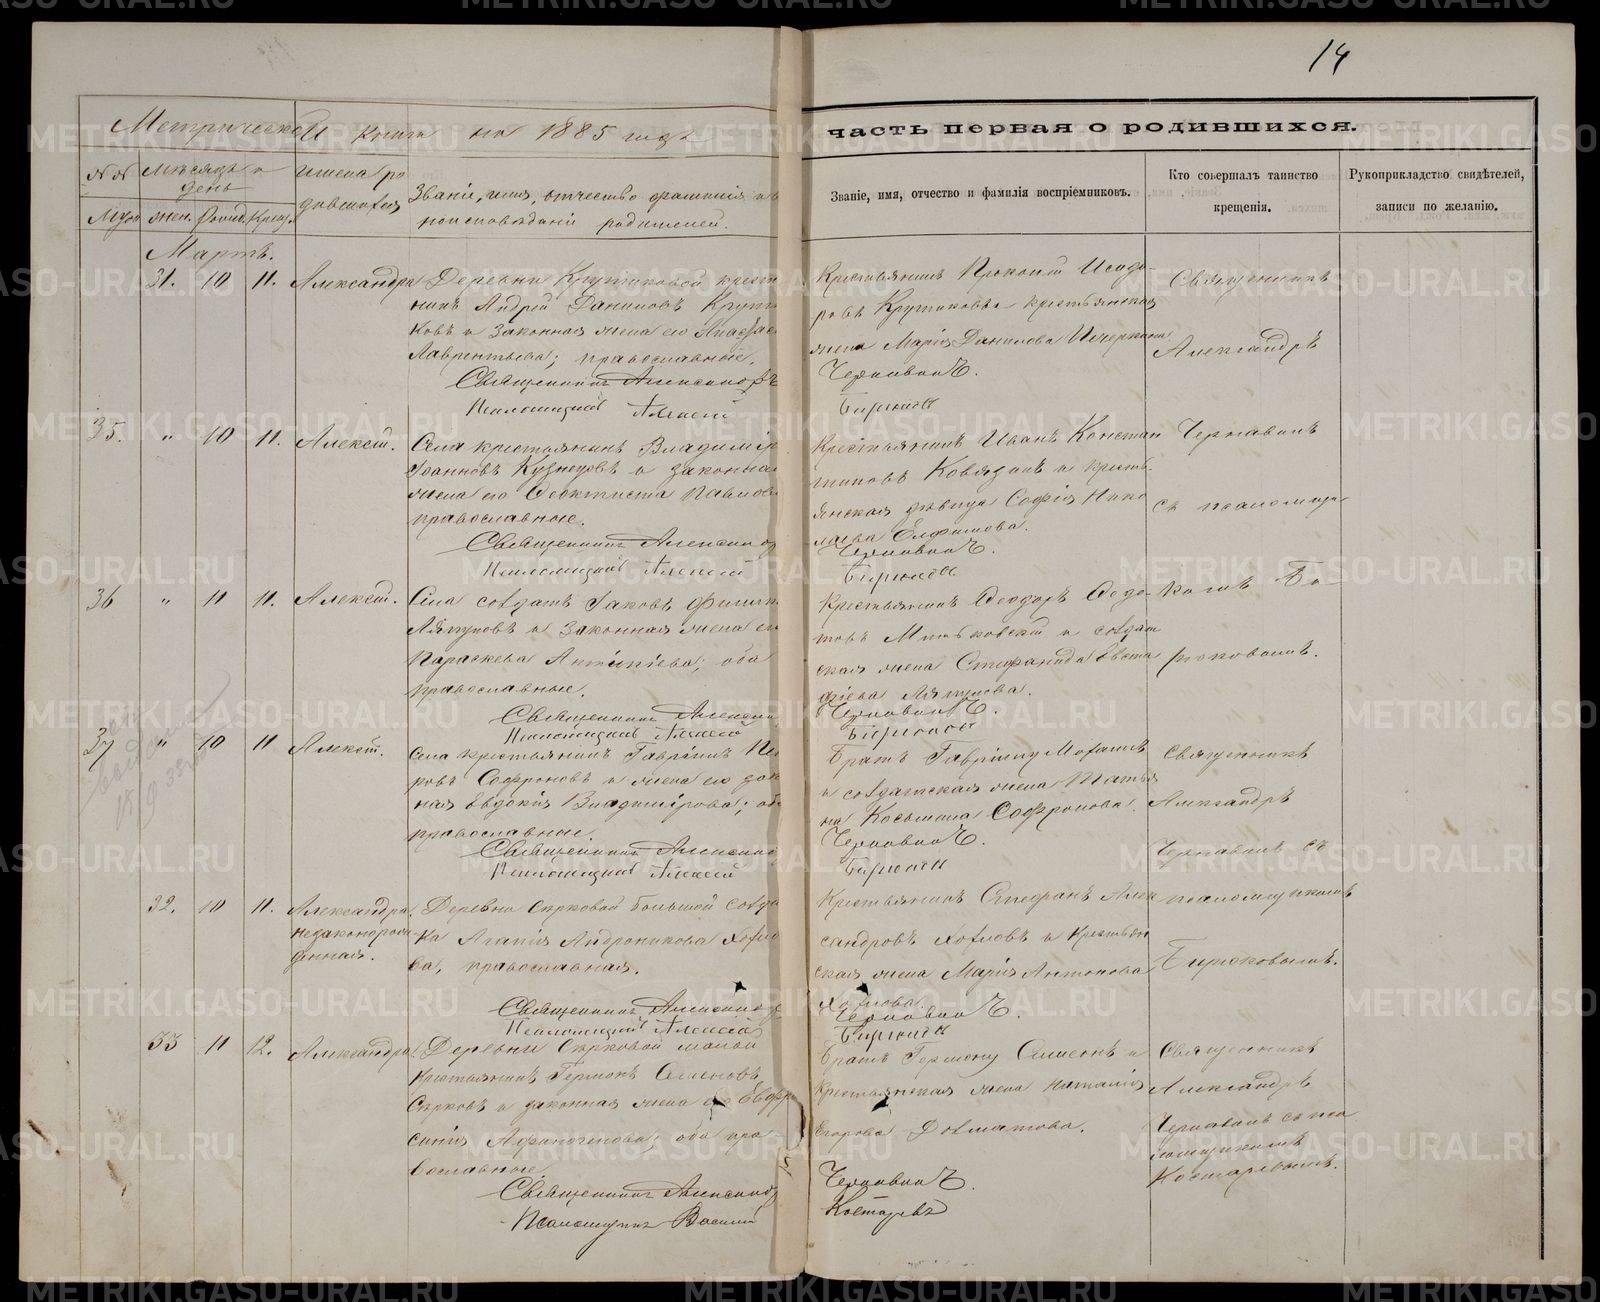 14
Метрической книги на 1885 годъ
часть первая о родившихся.
№№
Мѣсяцъ и день
Имена родившихся
Званіе, имя, отчество, фамилія и вѣроисповѣданіе родителей.
Муж.
жен.
Рожд.
Крещ.
Званіе, имя, отчество и фамилія воспріемниковъ.
Кто совершалъ таинство крещенія.
Рукоприкладство свидѣтелей, записи по желанію.
Мартъ.
31. 10 11. Александра
Деревни Крутиковой крестья
нинъ Андрей Даниловъ Крути
ковъ и законная жена его Анастас
Лаврентьева; православные.
Священникъ Александръ
Псаломщикъ Алексей
Крестьянинъ Прокопій Исидо-
ровъ Крутиковъ и крестьянская
жена Марія Данилова
Чернавинъ.
Бирюковъ
Священникъ
Александръ
35. " 10 11. Алексій.
Села крестьянинъ Владимір
Іоанновъ Кузнецовъ и законная
жена его Феоктиста Павлова
православные.
Священникъ Александр
Псаломщикъ Алексей
Крестьянинъ Иванъ Констан
тиновъ Ковязинъ и кресть-
янская дѣвица Софія Нико
лаева Елфимова.
Чернавинъ.
Бирюковъ
Чернавинъ
съ псаломщи-
36 " 11 11. Алексій.
Села солдатъ Іаковъ Филип
Ляпуновъ и законная жена ег
Параскева Антипіева; оба
православные.
Священникъ Александр
Псаломщикъ Алексей
Крестьянинъ Феодоръ Федо-
товъ и солдат
ская жена Стефанида Евста
фіева Ляпунова.
Чернавинъ.
Бирюковъ
комъ Би-
рюковымъ.
37 " 10 11 Алексій.
Села крестьянинъ Гавріилъ Пет
ровъ Софроновъ и жена его закон
ная Евдокія Владимірова; об
православные.
Священникъ Александр
Псаломщикъ Алексей
Братъ Гавріилу
и солдатская жена Татья
на Косьмина Софронова.
Чернавинъ.
Бирюковъ
Священникъ
Александръ
Чернавинъ съ
32. 10 11. Александра незаконорожденная.
Деревни Сѣрковой большой солда
ка Агапія Андроникова Хохло
ва, православная.
Священникъ Александр
Псаломщикъ Алексей
Крестьянинъ Стефанъ Алек
сандровъ Хохловъ и крестьян
ская жена Марія Антонова
Хохлова.
Чернавинъ.
Бирюковъ
псаломщикомъ
Бирюковымъ.
33 11 12. Александра
Деревни Сѣрковой малой
крестьянинъ Германъ Семеновъ
Сѣрковъ и законная жена его Евфро
синія Афиногенова; оба пра
вославные.
Священникъ Александр
Псаломщикъ Василій
Братъ Герману Симеонъ и
крестьянская жена Наталія
Егорова Долматова.
Чернавинъ.
Костаревъ
Священникъ
Александръ
Чернавинъ съ пса
ломщикомъ
Костаревымъ.
METRIKI.GASO-URAL.RU